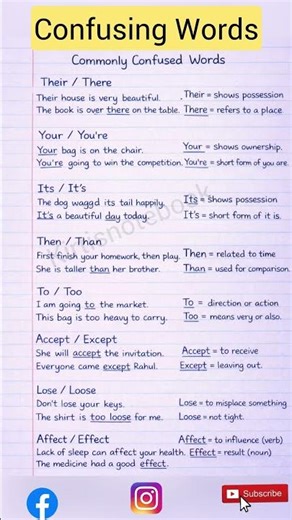 Confusing Words
Commonly Confused Words
Their / There
Their house is very beautiful. Their = shows possession
The book is over there on the table. There = refers to a place
Your / You're
Your bag is on the chair. Your = shows ownership.
You're going to win the competition. You're = short form of you are.
Its / It's
The dog waggd its tail happily. Its = shows possession
It's a beautiful day today. It's = short form of it is.
Then / Than
First finish your homework, then play. Then = related to time
She is taller than her brother. Than = used for comparison.
To / Too
I am going to the market. To = direction or action
This bag is too heavy to carry. Too = means very or also.
Accept / Except
She will accept the invitation. Accept = to receive
Everyone came except Rahul. Except = leaving out.
Lose / Loose
Don't lose your keys. Lose = to misplace something
The shirt is too loose for me. Loose = not tight.
Affect / Effect Affect = to influence (verb)
Lack of sleep can affect your health. Effect = result (noun)
The medicine had a good effect.
Subscribe